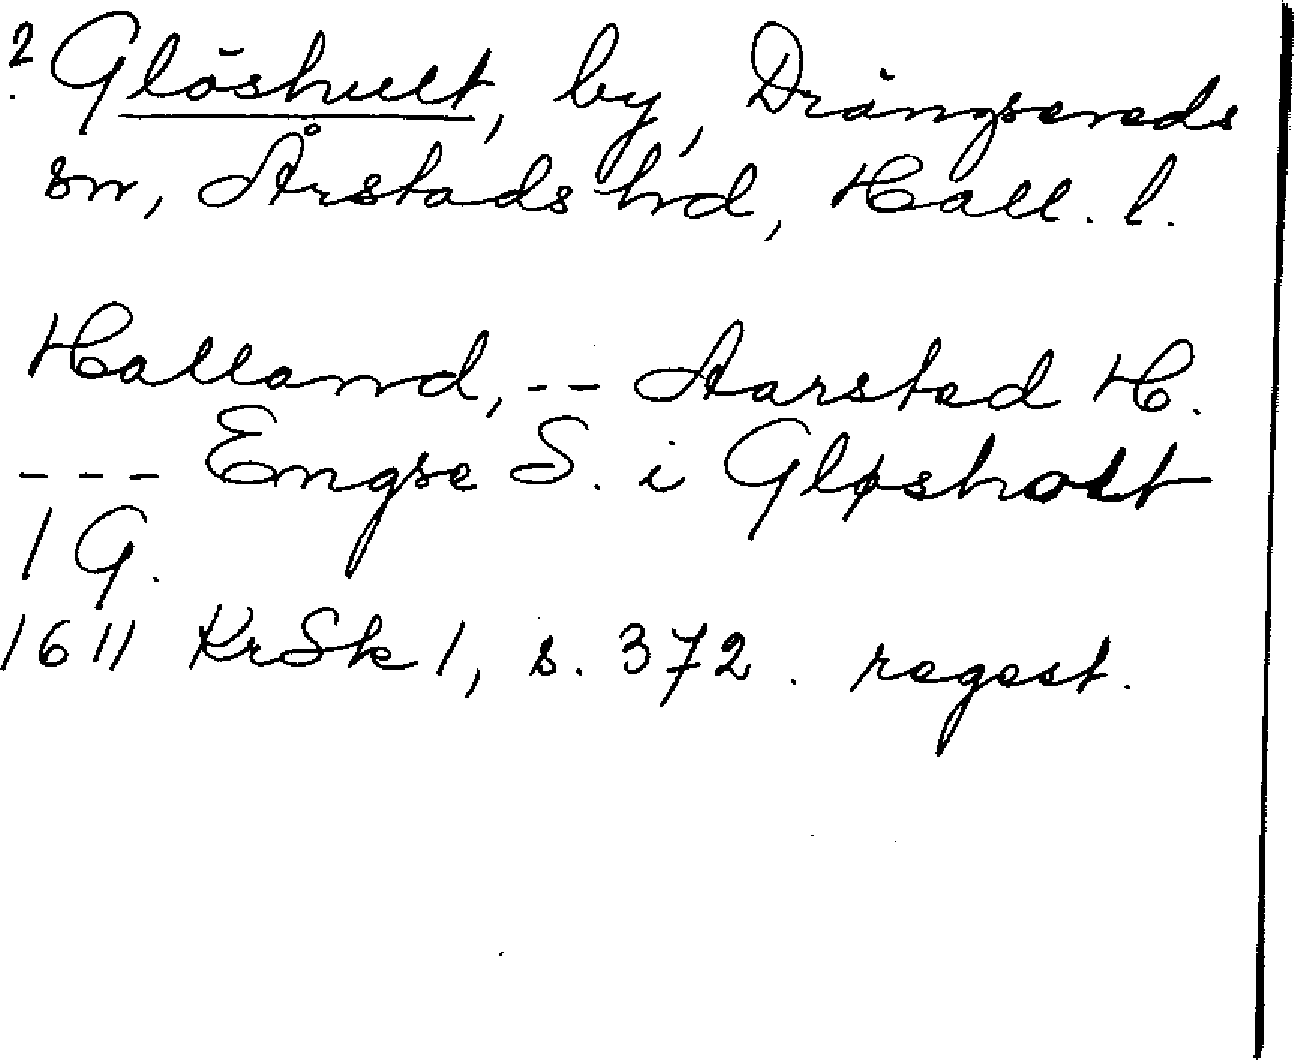 ? Glöshult, by, Drängsereds
sn, Årstads hrd, Hall. l.
Halland, -- Aarsted H.
--- Engre S. i Gløsholt
1 G.
1611 KrSk 1, s. 372. regest.